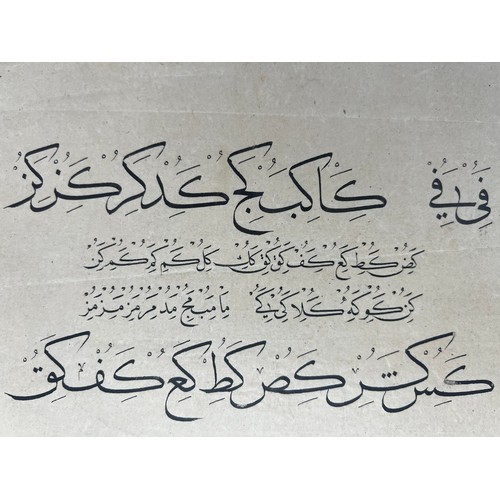 في في كا كب كج كد كر كز كز
كص كط كع كف كق كق كك كل كم كم كم كن
كن كو كه كلا كي كي ما مب مج مد مر مز مز مز
كس كش كص كط كع كف كق